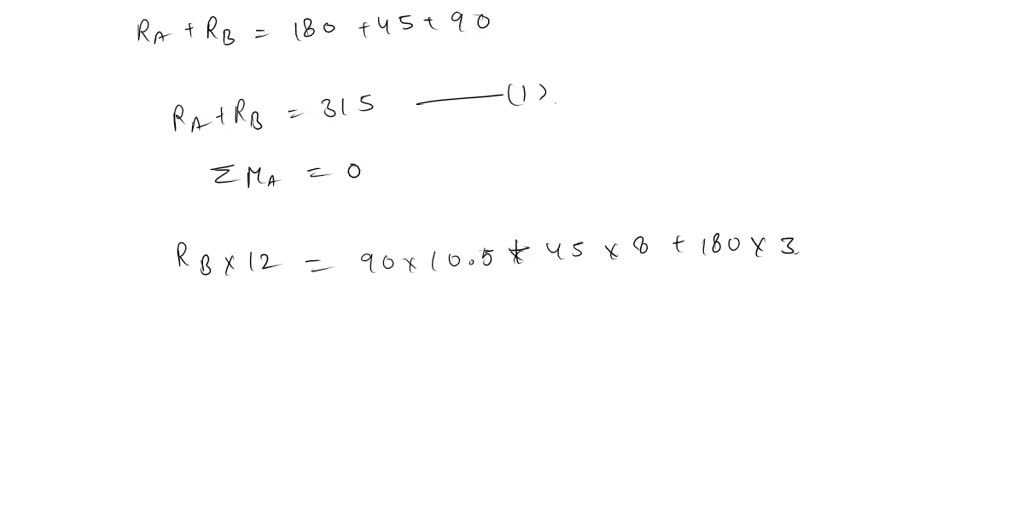 R_A + R_B = 180 + 45 + 90
R_A + R_B = 315 ——— (1)
Σ M_A = 0
R_B × 12 = 90 × 10.5 + 45 × 8 + 180 × 3